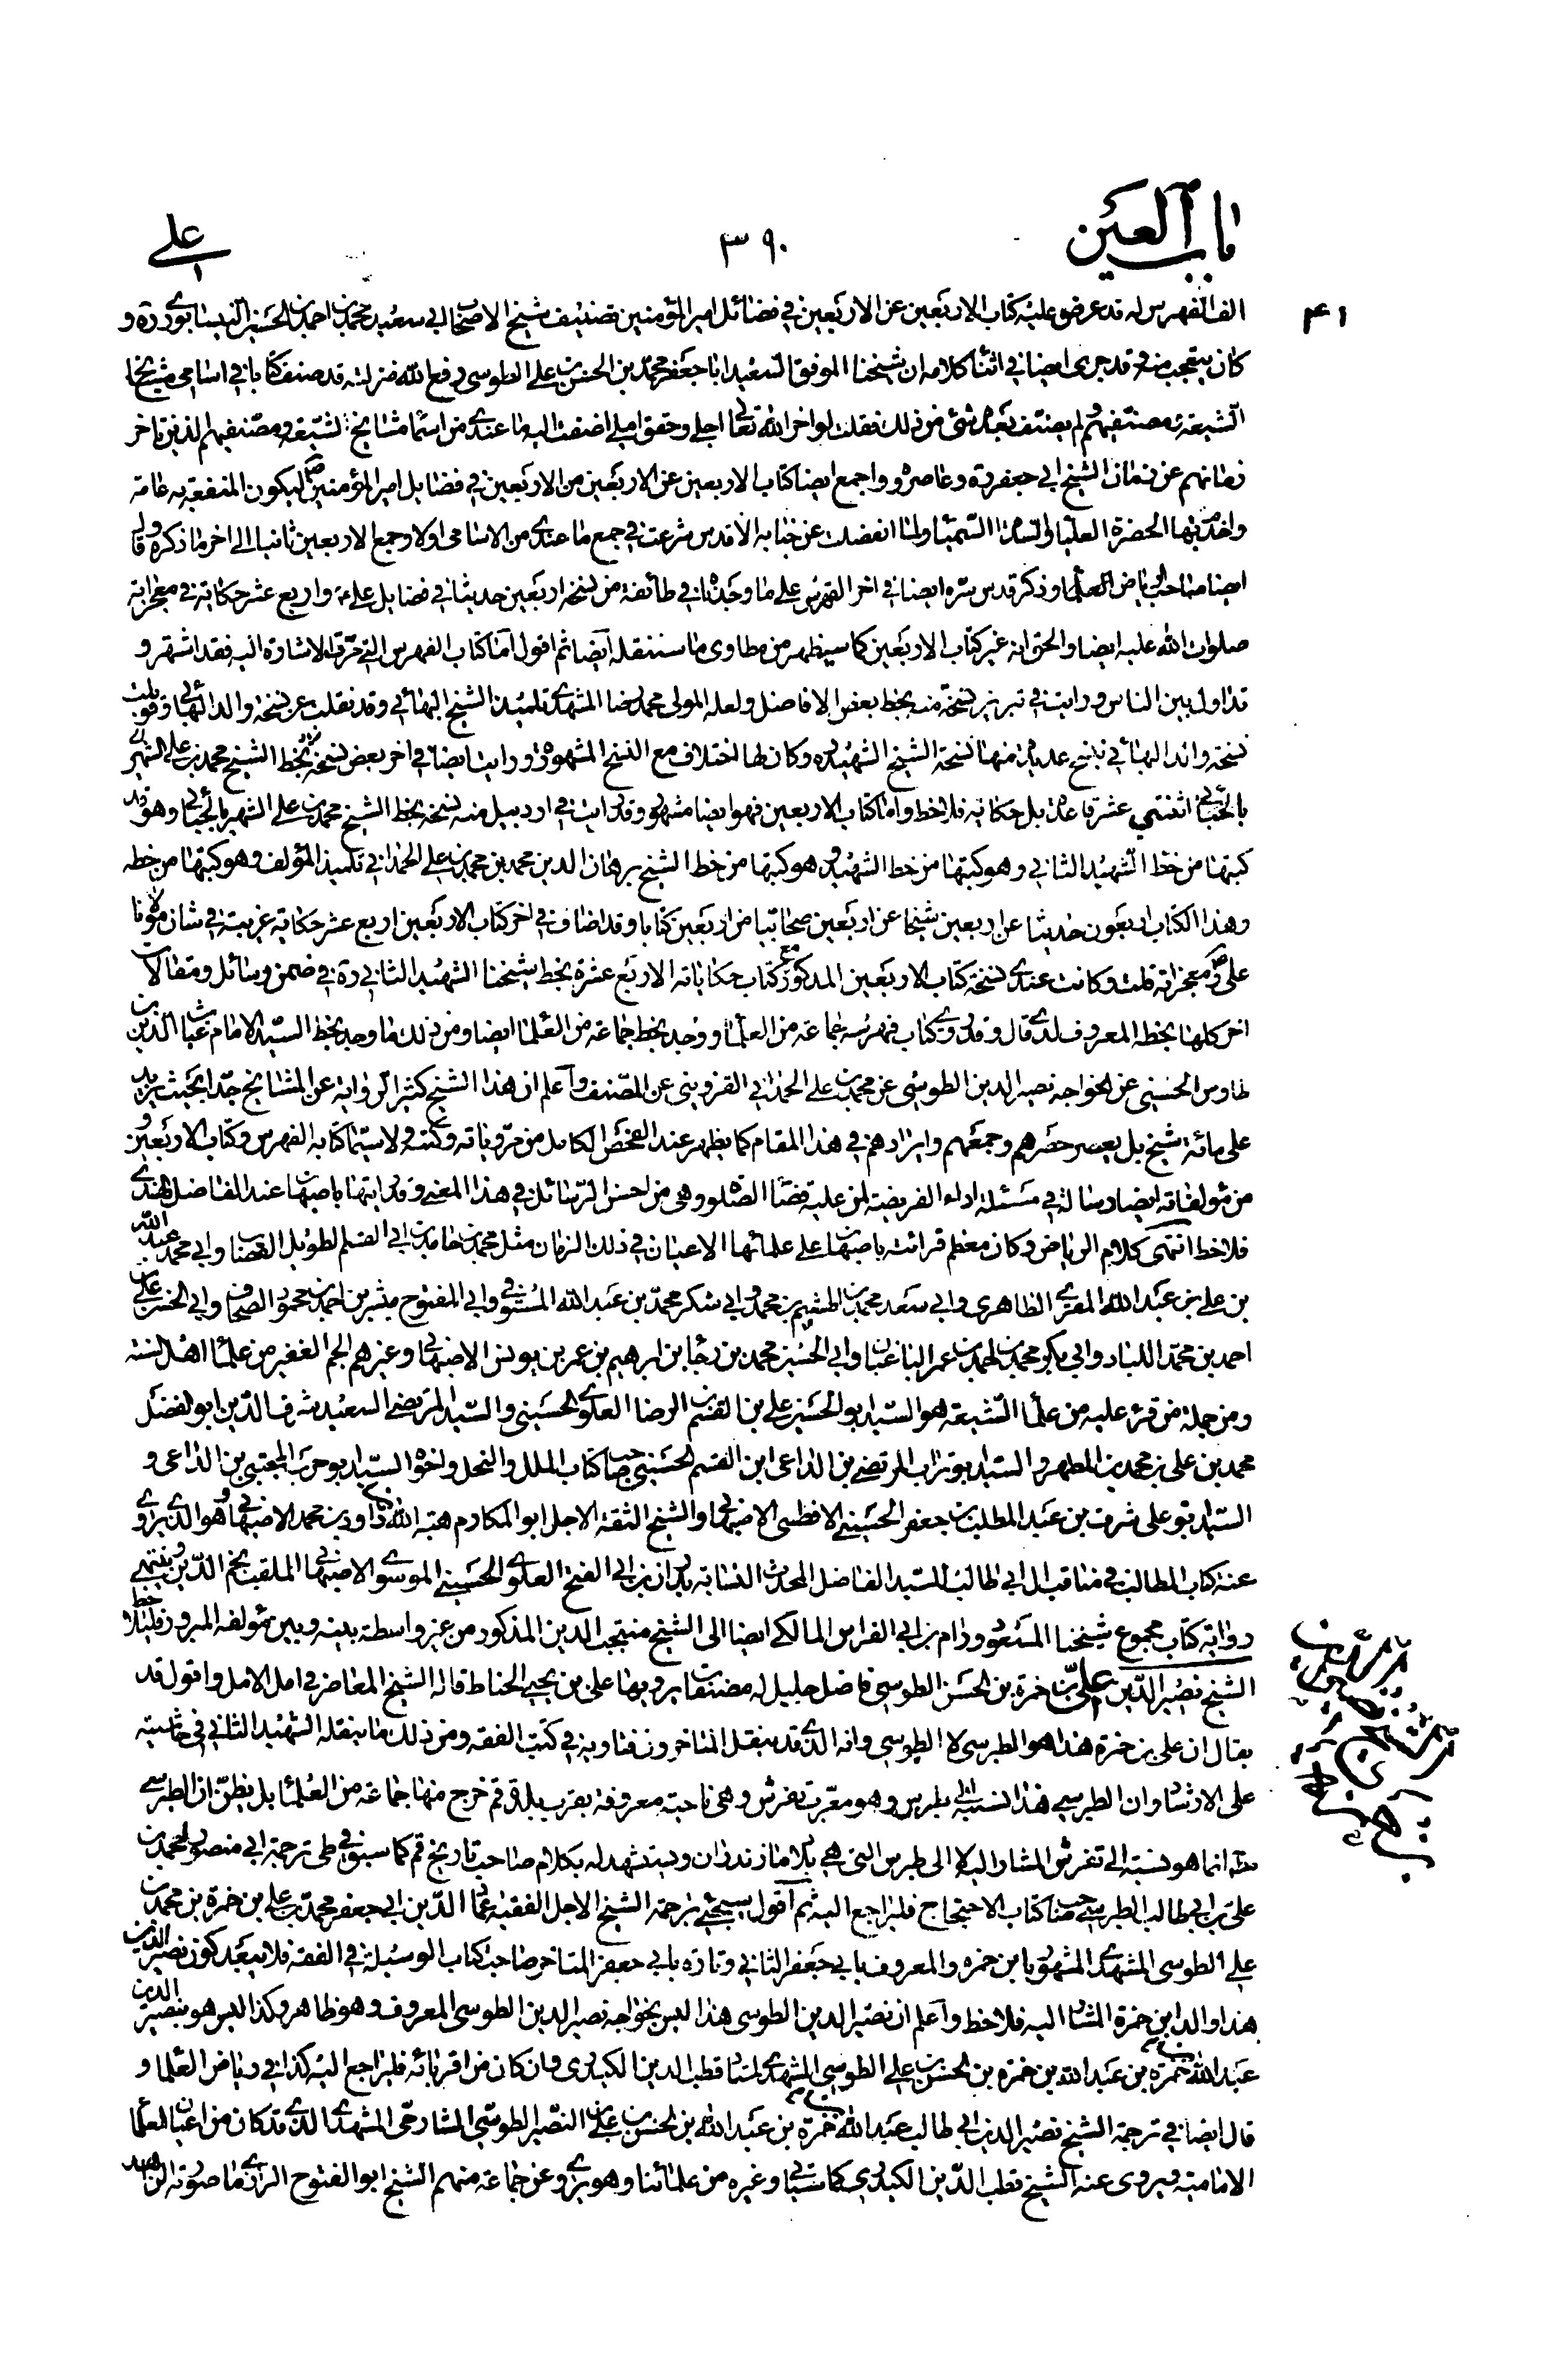 باب العين
٣٩٠
على
٤١
الف الفهرس له قد عرض عليه كتاب الاربعين عن الاربعين في فضائل امير المؤمنين تصنيف شيخ الاصحاب ابي سعيد محمد بن احمد بن الحسين النيسابوري ره و
كان يتعجب منه وقد جرى ايضا في اثناء كلامه ان شيخنا الموفق السعيد ابا جعفر محمد بن الحسن بن علي الطوسي رفع الله منزلته قد صنف كتابا في اسامي مشايخ
الشيعة ومصنفيهم ولم يصنف بعده شئ من ذلك فقلت لو اخر الله تعالى اجلي وحقق املي اضفت اليه ما عندي من اسماء مشايخ الشيعة ومصنفيهم الذين تاخر
زمانهم عن زمان الشيخ ابي جعفر ره وعاصروه واجمع ايضا كتاب الاربعين عن الاربعين من الاربعين في فضايل امير المؤمنين ليكون المنفعة به عامة
واخدم بهما الحضرة العليا والسدة السمياء ولما انفصلت عن جنابه الاقدس شرعت في جمع ما عندي من الاسامي اولا وجمع الاربعين ثانيا الى اخر ما ذكره وقال
ايضا صاحب رياض العلماء وذكر قدس سره ايضا في اخر الفهرس على ما وجدناه في طائفة من نسخه اربعين حديثا في فضايل علي ع واربع عشر حكاية في معجزاته
صلوات الله عليه ايضا والحق انه غير كتاب الاربعين كما سيظهر من مطاوي ما سننقله ايضا ثم اقول اما كتاب الفهرس التي مرت الاشارة اليه فقد اشتهر و
تداول بين الناس ورايت في تبريز نسخة منه بخط بعض الافاضل ولعله المولى محمد رضا المشهدي تلميذ الشيخ البهائي وقد نقلت عن نسخة والد البهائي وقوبلت
نسخة والد البهائي بنسخ عديدة منها نسخة الشيخ الشهيد ره وكان لها اختلاف مع النسخ المشهورة ورايت ايضا في اخر بعض نسخه بخط الشيخ محمد بن علي الشهير
بالجباعي اثنتي عشرة فائدة بل حكاية فلاحظ واما كتاب الاربعين فهو ايضا مشهور وقد رايت في اردبيل منه نسخة بخط الشيخ محمد بن علي الشهير بالجباعي وهو قد
كتبها من خط الشهيد الثاني وهو كتبها من خط الشهيد وهو كتبها من خط الشيخ برهان الدين محمد بن محمد بن علي الحمداني تلميذ المؤلف وهو كتبها من خطه
وهذا الكتاب اربعون حديثا عن اربعين شيخا عن اربعين صحابيا من اربعين كتابا وقد اضاف في اخر كتاب الاربعين اربع عشر حكاية غريبة في شان مولانا
علي ع ومعجزاته قلت وكانت عندي نسخة كتاب الاربعين المذكور مع كتاب حكاياته الاربع عشرة بخط شيخنا الشهيد الثاني ره في ضمن رسائل ومقالات
اخر كلها بخطه المعروف لدي قال وقد روى كتاب فهرسه جماعة من العلماء ووجد بخط جماعة من العلماء ايضا ومن ذلك ما وجد بخط السيد الامام غياث الدين بن
طاوس الحسيني عن الخواجه نصير الدين الطوسي عن محمد بن علي الحمداني القزويني عن المصنف واعلم ان هذا الشيخ كثير الرواية عن المشايخ جدا بحيث يزيد
على مائة شيخ بل يعسر حصرهم وجمعهم وايرادهم في هذا المقام كما يظهر عند الفحص الكامل من مروياته وكتبه ولا سيما كتابه الفهرس وكتاب الاربعين و
من مؤلفاته ايضا رسالة في مسئلة اداء الفريضة لمن عليه قضاء الصلوة وهي من احسن الرسائل في هذا المعنى وقد رايتها باصبهان عند الفاضل الهندي
فلاحظ انتهى كلام الرياض وكان معظم قرائته باصبهان على علمائها الاعيان في ذلك الزمان مثل محمد بن حامد بن ابي القسم الطويل القصاب وابي محمد عبد الله
بن علي بن عبد الله المقري الطاهري وابي سعد محمد بن الهيثم بن محمد وابي شكر محمد بن عبد الله المستوفي وابي الفتوح مبشر بن احمد بن محمود الصحاف وابي الحسن علي بن
احمد بن محمد اللباد وابي بكر محمد بن احمد بن عمر الباغبان وابي الحسين محمد بن رجاء بن ابرهيم بن عمر بن يونس الاصبهاني وغيرهم الجم الغفير من علماء اهل السنة
ومن جملة من قرء عليه من علماء الشيعة هو السيد ابو الحسين علي بن القسم بن الرضا العلوي الحسيني والسيد المرتضى السعيد شرف الدين ابو الفضل
محمد بن علي بن محمد بن المطهر والسيد ابو تراب المرتضى بن الداعي ابن القسم الحسيني صاحب كتاب الملل والنحل واخوه السيد ابو حرب المجتبى بن الداعي و
السيد ابو علي شرف بن عبد المطلب بن جعفر الحسيني الافطسي الاصبهاني والشيخ الثقة الاجل ابو المكارم هبة الله بن داود بن محمد الاصبهاني وهو الذي يروي
عنه كتاب المطالب في مناقب ال ابي طالب للسيد الفاضل المحدث النسابة بدران بن ابي الفتح العلوي الحسيني الموسوي الاصبهاني الملقب بنجم الدين وينتهي
رواية كتاب مجموع شيخنا المسعود ورام بن ابي الفراس المالكي ايضا الى الشيخ منتجب الدين المذكور من غير واسطة بينه وبين مؤلفه المبرور فليلاحظ
الشيخ نصير الدين علي بن حمزة بن الحسن الطوسي فاضل جليل له مصنفات يرويها علي بن يحيى الخياط قاله الشيخ المعاصر في امل الامل واقول قد
يقال ان علي بن حمزة هذا هو الطبرسي لا الطوسي وانه الذي قد ينقل المتاخرون فتاويه في كتب الفقه ومن ذلك ما ينقله الشهيد الثاني في حاشيته
على الارشاد وان الطبرسي هذا النسبة الى طبرس وهو معرب تفرش وهي ناحية معروفة بقرب بلدة قم خرج منها جماعة من العلماء بل يظن ان الطبرسي
انما هو نسبة الى تفرش المشار اليه لا الى طبرس التي هي بلاد مازندران ويستشهد له بكلام صاحب تاريخ قم كما سبق في طي ترجمة ابي منصور احمد بن
علي بن ابي طالب الطبرسي صاحب كتاب الاحتجاج فليراجع اليه ثم اقول سيجئ ترجمة الشيخ الاجل الفقيه عماد الدين ابي جعفر محمد بن علي بن حمزة بن محمد بن
علي الطوسي المشهدي المشهور بابن حمزه والمعروف بابي جعفر الثاني وتارة بابي جعفر المتاخر صاحب كتاب الوسيلة في الفقه فلا يبعد كون نصير الدين
هذا والد ابن حمزة المشار اليه فلاحظ واعلم ان نصير الدين الطوسي هذا ليس بخواجه نصير الدين الطوسي المعروف وهو ظاهر وكذا ليس هو بنصير الدين
عبد الله بن حمزة بن عبد الله بن حمزة بن الحسن بن علي الطوسي المشهدي استاد قطب الدين الكيدري وان كان من اقربائه فليراجع اليه كذا في رياض العلماء و
قال ايضا في ترجمة الشيخ نصير الدين ابي طالب عبد الله بن حمزة بن عبد الله بن الحسن بن علي النصير الطوسي الشارحي المشهدي الذي قد كان من اعيان العلماء
الامامية ويروى عنه الشيخ قطب الدين الكيدري كما سيأتي وغيره من علمائنا وهو يروي عن جماعة منهم الشيخ ابو الفتوح الرازي ما صورته